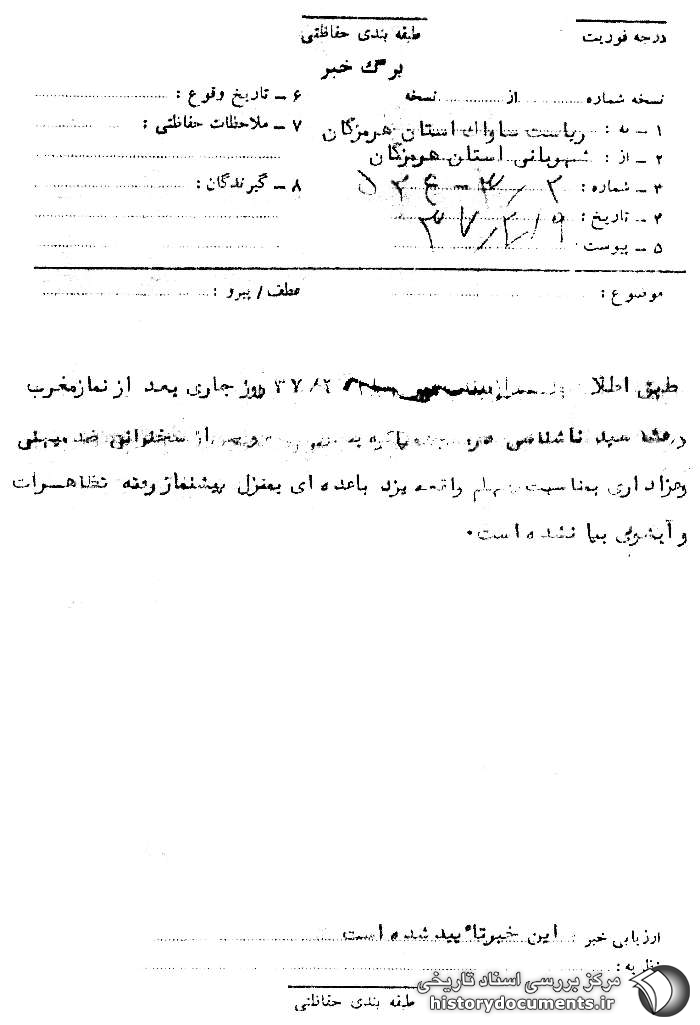 درجه فوریت
طبقه بندی حفاظتی
برگ خبر
نسخه شماره ............ از ............ نسخه
۱ – به : ریاست ساواک استان هرمزگان
۲ – از : شهربانی استان هرمزگان
۳ – شماره :
۴ – تاریخ : ۳۷/۲/۹
۵ – پیوست
۶ – تاریخ وقوع :
۷ – ملاحظات حفاظتی :
۸ – گیرندگان :
موضوع :
عطف / پیرو :
طبق ۳۷/۲ روز جاری بعد از نماز مغرب
سید ناشناسی از سخنرانی ضد میهنی
وعزاداری بمناسبت واقعه یزد باعده ای بمنزل پیشنماز رفته تظاهرات
و آشوبی بپا نشده است.
ارزیابی خبر : این خبر تائید شده است
نظریه :
طبقه بندی حفاظتی
مرکز بررسی اسناد تاریخی
historydocuments.ir